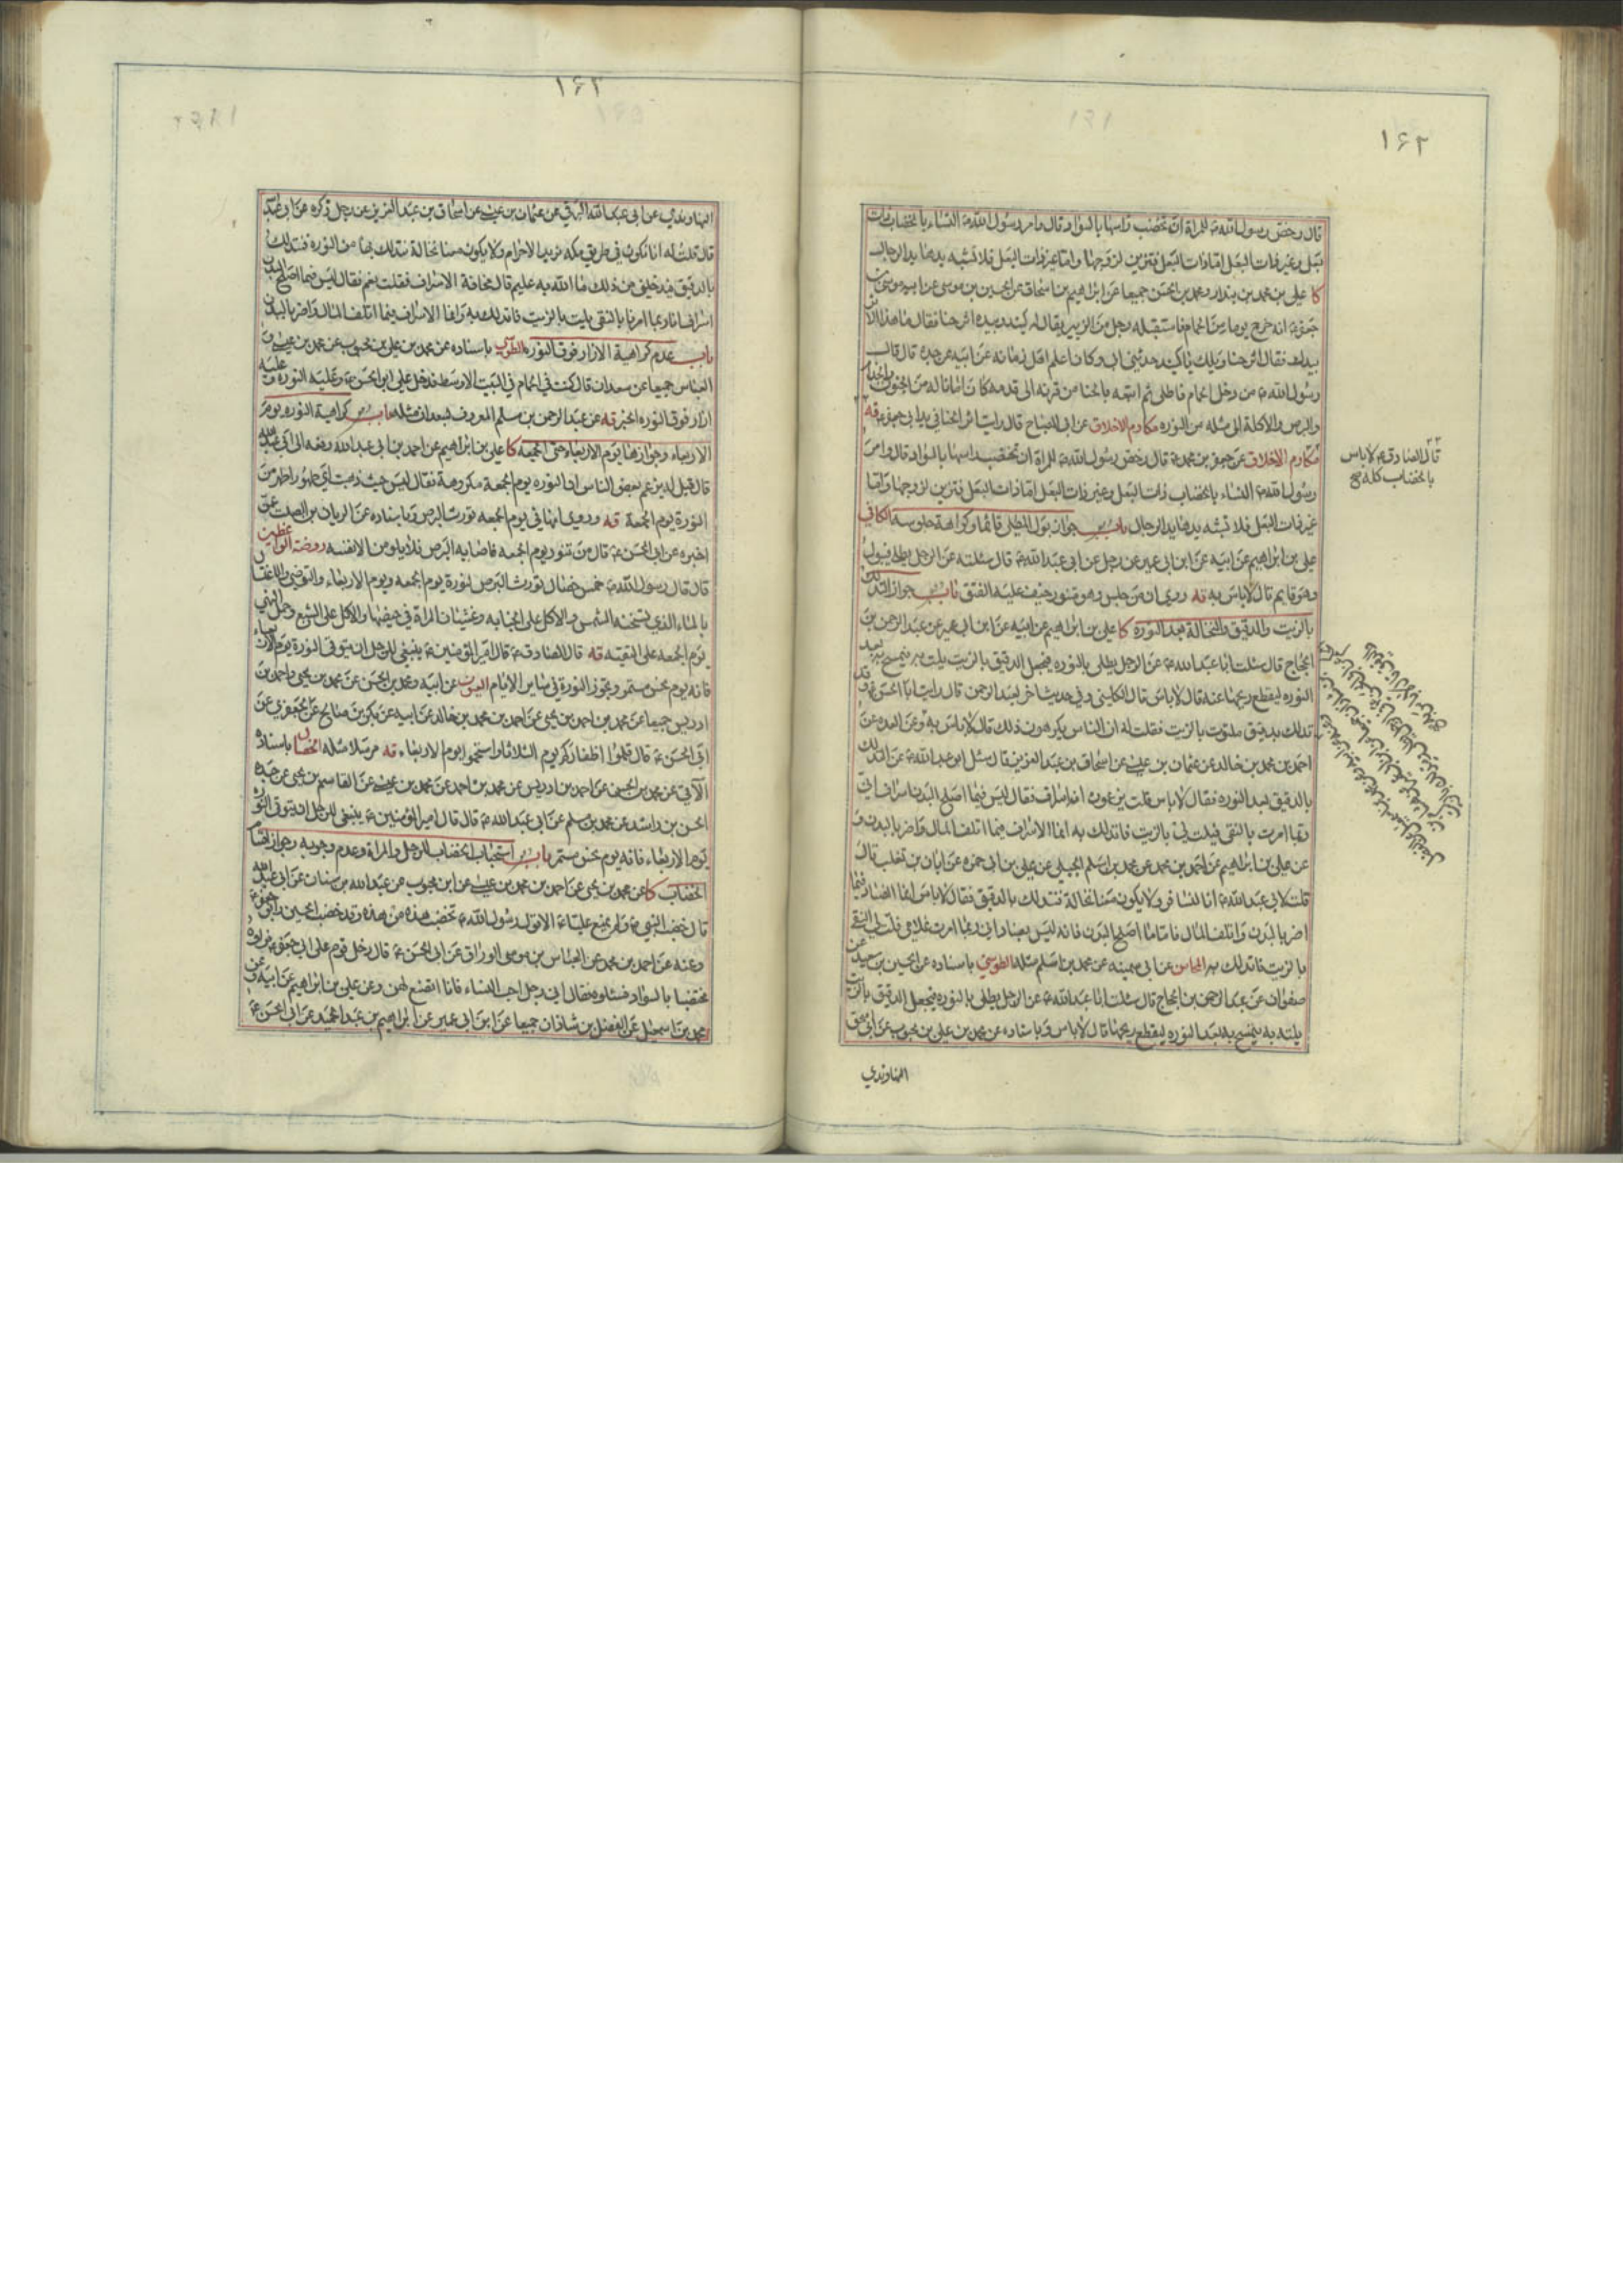 ۱۶۲
قال رخص رسول الله ص للمراة ان تخضب راسها بالسواد قال وامر رسول الله ص النساء بالخضاب ذات
البعل وغير ذات البعل اما ذات البعل فتتزين لزوجها واما غير ذات البعل فلا تشبه يدها يد الرجال
كا علي بن محمد بن بندار ومحمد بن الحسن جميعا عن ابراهيم بن اسحاق عن الحسين بن موسى عن ابيه موسى بن
جعفر ع انه خرج يوما من الحمام فاستقبله رجل من ال زبير يقال له كنيد وبيده اثر حنا فقال ما هذا الاثر
بيدك فقال اثر حنا ويلك يا كنيد حدثني ابي وكان اعلم اهل زمانه عن ابيه عن جده قال قال
رسول الله ص من دخل الحمام فاطلى ثم اتبعه بالحنا من قرنه الى قدمه كان امانا له من الجنون والجذام
والبرص والاكلة الى مثله من النوره مكارم الاخلاق عن ابي الصباح قال رايت اثر الحنا في يد ابي جعفر ع قه
مكارم الاخلاق عن جعفر بن محمد ع قال رخص رسول الله ص للمراة ان تخضب راسها بالسواد قال وامر
رسول الله ص النساء بالخضاب ذات البعل وغير ذات البعل اما ذات البعل فتتزين لزوجها واما
غير ذات البعل فلا تشبه يدها يد الرجال باب جواز بول المطلي قائما وكراهة جلوسه الكافي
علي بن ابراهيم عن ابيه عن ابن ابي عمير عن رجل عن ابي عبد الله ع قال سئلته عن الرجل يطلي فيبول
وهو قايم قال لا باس به قه وروي ان من جلس وهو متنور خيف عليه الفتق باب جواز التدلك
بالزيت والدقيق والنخالة بعد النورة كا علي بن ابراهيم عن ابيه عن ابن ابي عمير عن عبد الرحمن بن
الحجاج قال سئلت ابا عبد الله ع عن الرجل يطلي بالنوره فيجعل الدقيق بالزيت يلت به يتمسح به بعد
النوره ليقطع ريحها عنه قال لا باس قال الكليني وفي حديث اخر لعبد الرحمن قال رايت ابا الحسن ع وقد
تدلك بدقيق ملتوت بالزيت فقلت له ان الناس يكرهون ذلك قال لا باس به وعن العده عن
احمد بن محمد بن خالد عن عثمان بن عيسى عن اسحاق بن عبد العزيز قال سئل ابو عبد الله ع عن التدلك
بالدقيق بعد النوره فقال لا باس قلت يزعمون انه اسراف فقال ليس فيما اصلح البدن اسراف اني
ربما امرت بالنقي فيلت لي بالزيت فاتدلك به انما الاسراف فيما اتلف المال واضر بالبدن و
عن علي بن ابراهيم عن احمد بن محمد عن محمد بن اسلم الجبلي عن علي بن ابي حمزه عن ابان بن تغلب قال
قلت لابي عبد الله ع انا لنسافر ولا يكون معنا نخالة فنتدلك بالدقيق فقال لا باس انما الفساد فيما
اضر بالبدن واتلف المال فاما ما اصلح البدن فانه ليس بفساد اني ربما امرت غلامي فلت لي النقي
بالزيت فاتدلك به المحاسن عن ابي سمينه عن محمد بن اسلم مثله الطوسي باسناده عن الحسين بن سعيد عن
صفوان عن عبد الرحمن بن الحجاج قال سئلت ابا عبد الله ع عن الرجل يطلي بالنوره فيجعل الدقيق بالزيت
يلته به يتمسح به بعد النوره ليقطع ريحها قال لا باس وباسناده عن محمد بن علي بن محبوب عن ابي اسحق
النهاوندي
قال الصادق ع لا باس
بالخضاب كله
۱۶۲
النهاوندي عن ابي عبد الله البرقي عن عثمان بن عيسى عن اسحاق بن عبد العزيز عن رجل ذكره عن ابي عبد الله
قال قلت له انا نكون في طريق مكه نريد الاحرام ولا يكون معنا نخالة نتدلك بها من النوره فنتدلك
بالدقيق فيدخلني من ذلك ما الله به عليم قال مخافة الاسراف فقلت نعم فقال ليس فيما اصلح البدن
اسراف انا ربما امرنا بالنقي يلت بالزيت فاتدلك به وانما الاسراف فيما اتلف المال واضر بالبدن
باب عدم كراهية الازار فوق النوره الطوسي باسناده عن محمد بن علي بن محبوب عن محمد بن عيسى و
العباس جميعا عن سعدان قال كنت في الحمام في البيت الاوسط فدخل علي ابو الحسن ع وعليه النوره وعليه
ازار فوق النوره الخبر قه عن عبد الرحمن بن سلم المعروف بسعدان مثله باب كراهية النوره يوم
الاربعاء وجوازها يوم الاربعاء حتى الجمعه كا علي بن ابراهيم عن احمد بن ابي عبد الله رفعه الى ابي عبد الله
قال قيل له يزعم بعض الناس ان النوره يوم الجمعة مكروهة فقال ليس حيث ذهبت اي طهور اطهر من
النورة يوم الجمعة قه وروي انها في يوم الجمعه تورث البرص وباسناده عن الريان بن الصلت عمن
اخبره عن ابي الحسن ع قال من تنور يوم الجمعه فاصابه البرص فلا يلومن الا نفسه روضة الواعظين
قال قال رسول الله ص خمس خصال تورث البرص النورة يوم الجمعه ويوم الاربعاء والتوضي والاغتسال
بالماء الذي تسخنه الشمس والاكل على الجنابه وغشيان المراة في حيضها والاكل على الشبع
يوم الجمعه على التقيته قه قال الصادق ع قال امير المؤمنين ع ينبغي للرجل ان يتوقى النورة يوم الاربعاء
فانه يوم نحس مستمر ويجوز النورة في ساير الايام العيون عن ابيه ومحمد بن الحسن عن محمد بن يحيى واحمد بن
ادريس جميعا عن محمد بن احمد بن يحيى عن احمد بن محمد بن خالد عن ابيه عن بكر بن صالح عن الجعفري عن
ابي الحسن ع قال قلموا اظفاركم يوم الثلاثا واستحموا يوم الاربعاء قه مرسلا مثله الخصال باسناده
الآتي عن احمد بن ادريس عن محمد بن احمد عن محمد بن عيسى عن القاسم بن يحيى عن جده
الحسن بن راشد عن محمد بن مسلم عن ابي عبد الله ع قال قال امير المؤمنين ع ينبغي للرجل ان يتوقى النوره
يوم الاربعاء فانه يوم نحس مستمر باب استحباب الخضاب للرجل والمراة وعدم وجوبه وجواز
الخضاب كا عن محمد بن يحيى عن احمد بن محمد بن عيسى عن ابن محبوب عن عبد الله بن سنان عن ابي عبد الله
قال خضب النبي ص ولم يمنع عليا ع الا قول رسول الله ص تخضب هذه من هذه وقد خضب الحسين وابو جعفر ع
وعنه عن احمد بن محمد عن العباس بن موسى الوراق عن ابي الحسن ع قال دخل قوم على ابي جعفر ع فراوه
مختضبا بالسواد فسئلوه فقال اني رجل احب النساء فانا اتصنع لهن وعن علي بن ابراهيم عن ابيه وعن
محمد بن اسمعيل عن الفضل بن شاذان جميعا عن ابن ابي عمير عن ابراهيم بن عبد الحميد عن ابي الحسن ع